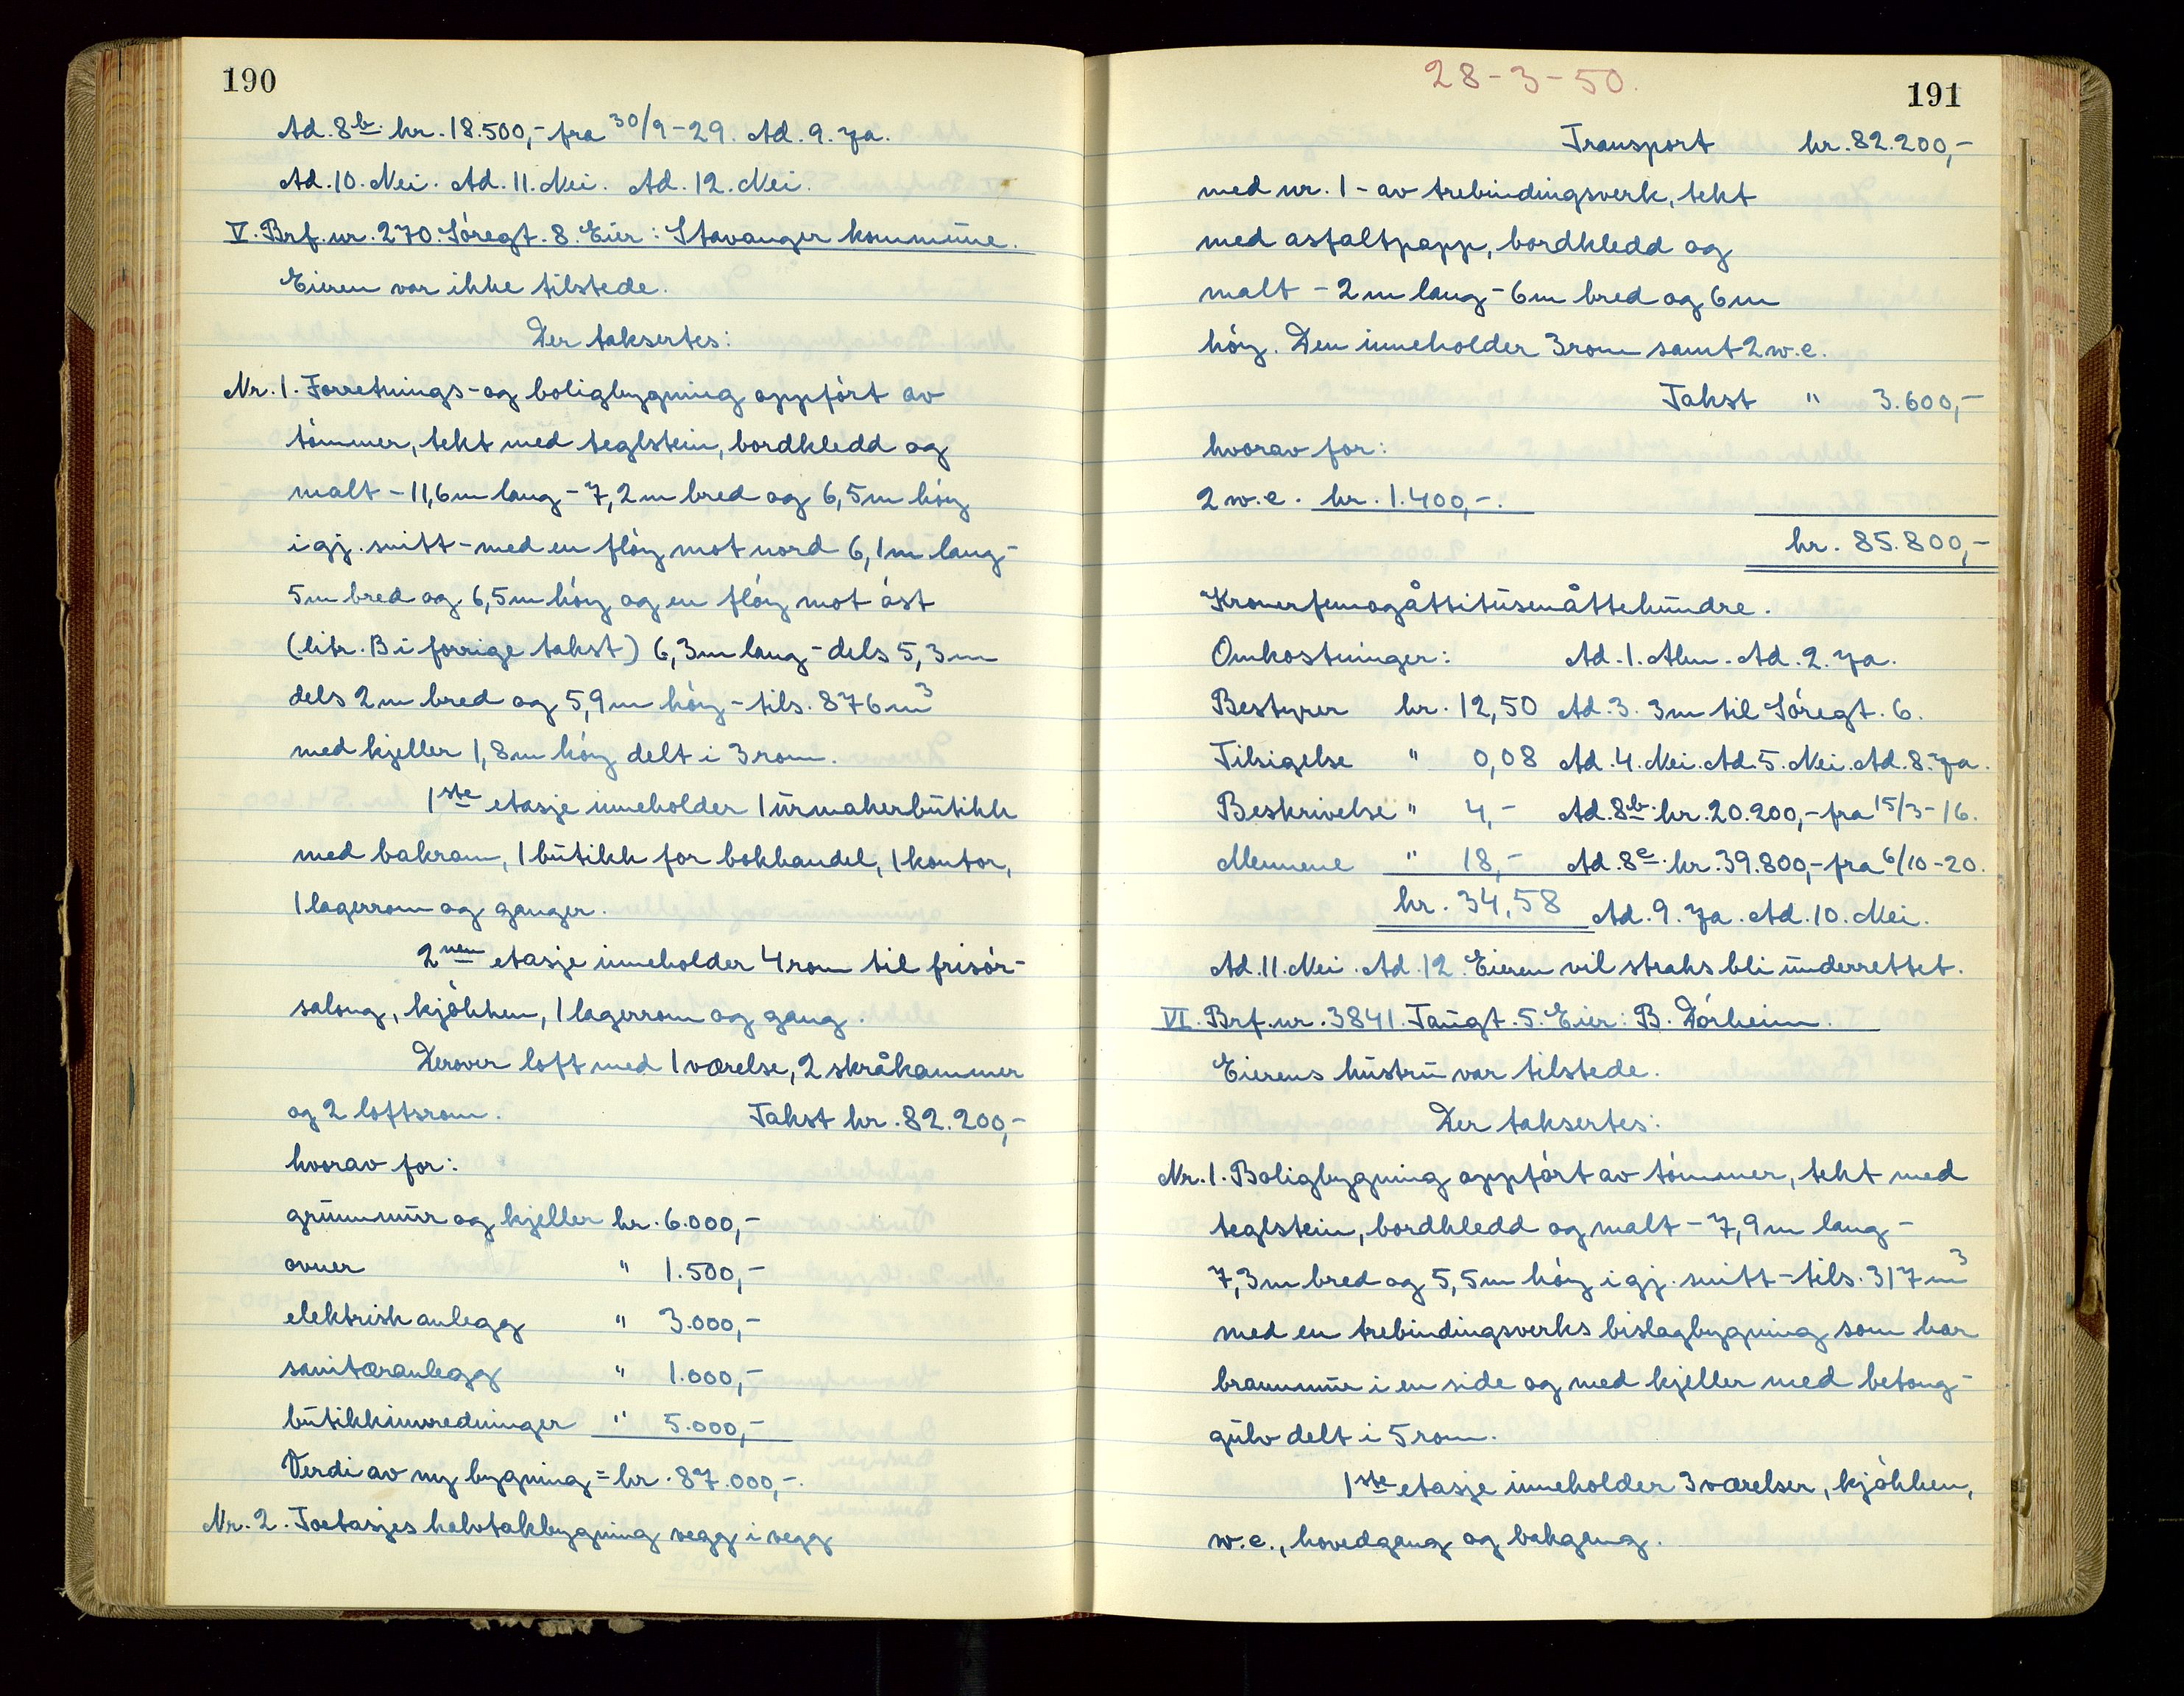 190
Ad. 8b. kr. 18.500,- fra 30/9-29. Ad. 9. Ja.
Ad. 10. Nei. Ad. 11. Nei. Ad. 12. Nei.
V. Brf. nr. 270. Söregt. 8. Eier: Stavanger kommune.
Eieren var ikke tilstede.
Der taksertes:
Nr. 1. Forretnings- og boligbygning oppfört av
tömmer, tekt med teglstein, bordkledd og
malt - 11,6 m lang - 7,2 m bred og 6,5 m höy
i gj. snitt - med en flöy mot nord 6,1 m lang -
5 m bred og 6,5 m höy og en flöy mot öst
(litr. B i forrige takst) 6,3 m lang - dels 5,3 m
dels 2 m bred og 5,9 m höy - tils. 876 m3
med kjeller 1,8 m höy delt i 3 rom.
1ste etasje inneholder 1 urmakerbutikk
med bakrom, 1 butikk for bokhandel, 1 kontor,
1 lagerrom og ganger.
2nen etasje inneholder 4 rom til frisör-
salong, kjökken, 1 lagerrom og gang.
Derover loft med 1 værelse, 2 skråkammer
og 2 loftsrom. Takst kr. 82.200,-
hvorav for:
grunnmur og kjeller kr. 6.000,-
ovner " 1.500,-
elektrisk anlegg " 3.000,-
sanitæranlegg " 1.000,-
butikkinnredninger " 5.000,-
Verdi av ny bygning = kr. 87.000,-.
Nr. 2. Toetasjes halvtakbygning vegg i vegg
28-3-50.
191
Transport kr. 82.200,-
med nr. 1 - av trebindingsverk, tekt
med asfaltpapp, bordkledd og
malt - 2 m lang - 6 m bred og 6 m
höy. Den inneholder 3 rom samt 2 w.c.
Takst " 3.600,-
hvorav for:
2 w.c. kr. 1.400,-.
kr. 85.800,-
Kronerfemogåttitusenåttehundre.
Omkostninger: Ad. 1. Alm. Ad. 2. Ja.
Bestyrer kr. 12,50 Ad. 3. 3 m til Söregt. 6.
Tilsigelse " 0,08 Ad. 4. Nei. Ad. 5. Nei. Ad. 8. Ja.
Beskrivelse " 4,- Ad. 8b. kr. 20.200,- fra 15/3-16.
Mennene " 18,- Ad. 8c. kr. 39.800,- fra 6/10-20.
kr. 34,58 Ad. 9. Ja. Ad. 10. Nei.
Ad. 11. Nei. Ad. 12. Eieren vil straks bli underrettet.
VI. Brf. nr. 3841. Taugt. 5. Eier: B. Dörheim.
Eierens hustru var tilstede.
Der taksertes:
Nr. 1. Boligbygning oppfört av tömmer, tekt med
teglstein, bordkledd og malt - 7,9 m lang -
7,3 m bred og 5,5 m höy i gj. snitt - tils. 317 m3
med en trebindingsverks bislagbygning som har
brannmur i en side og med kjeller med betong-
gulv delt i 5 rom.
1ste etasje inneholder 3 værelser, kjökken,
w.c., hovedgang og bakgang.